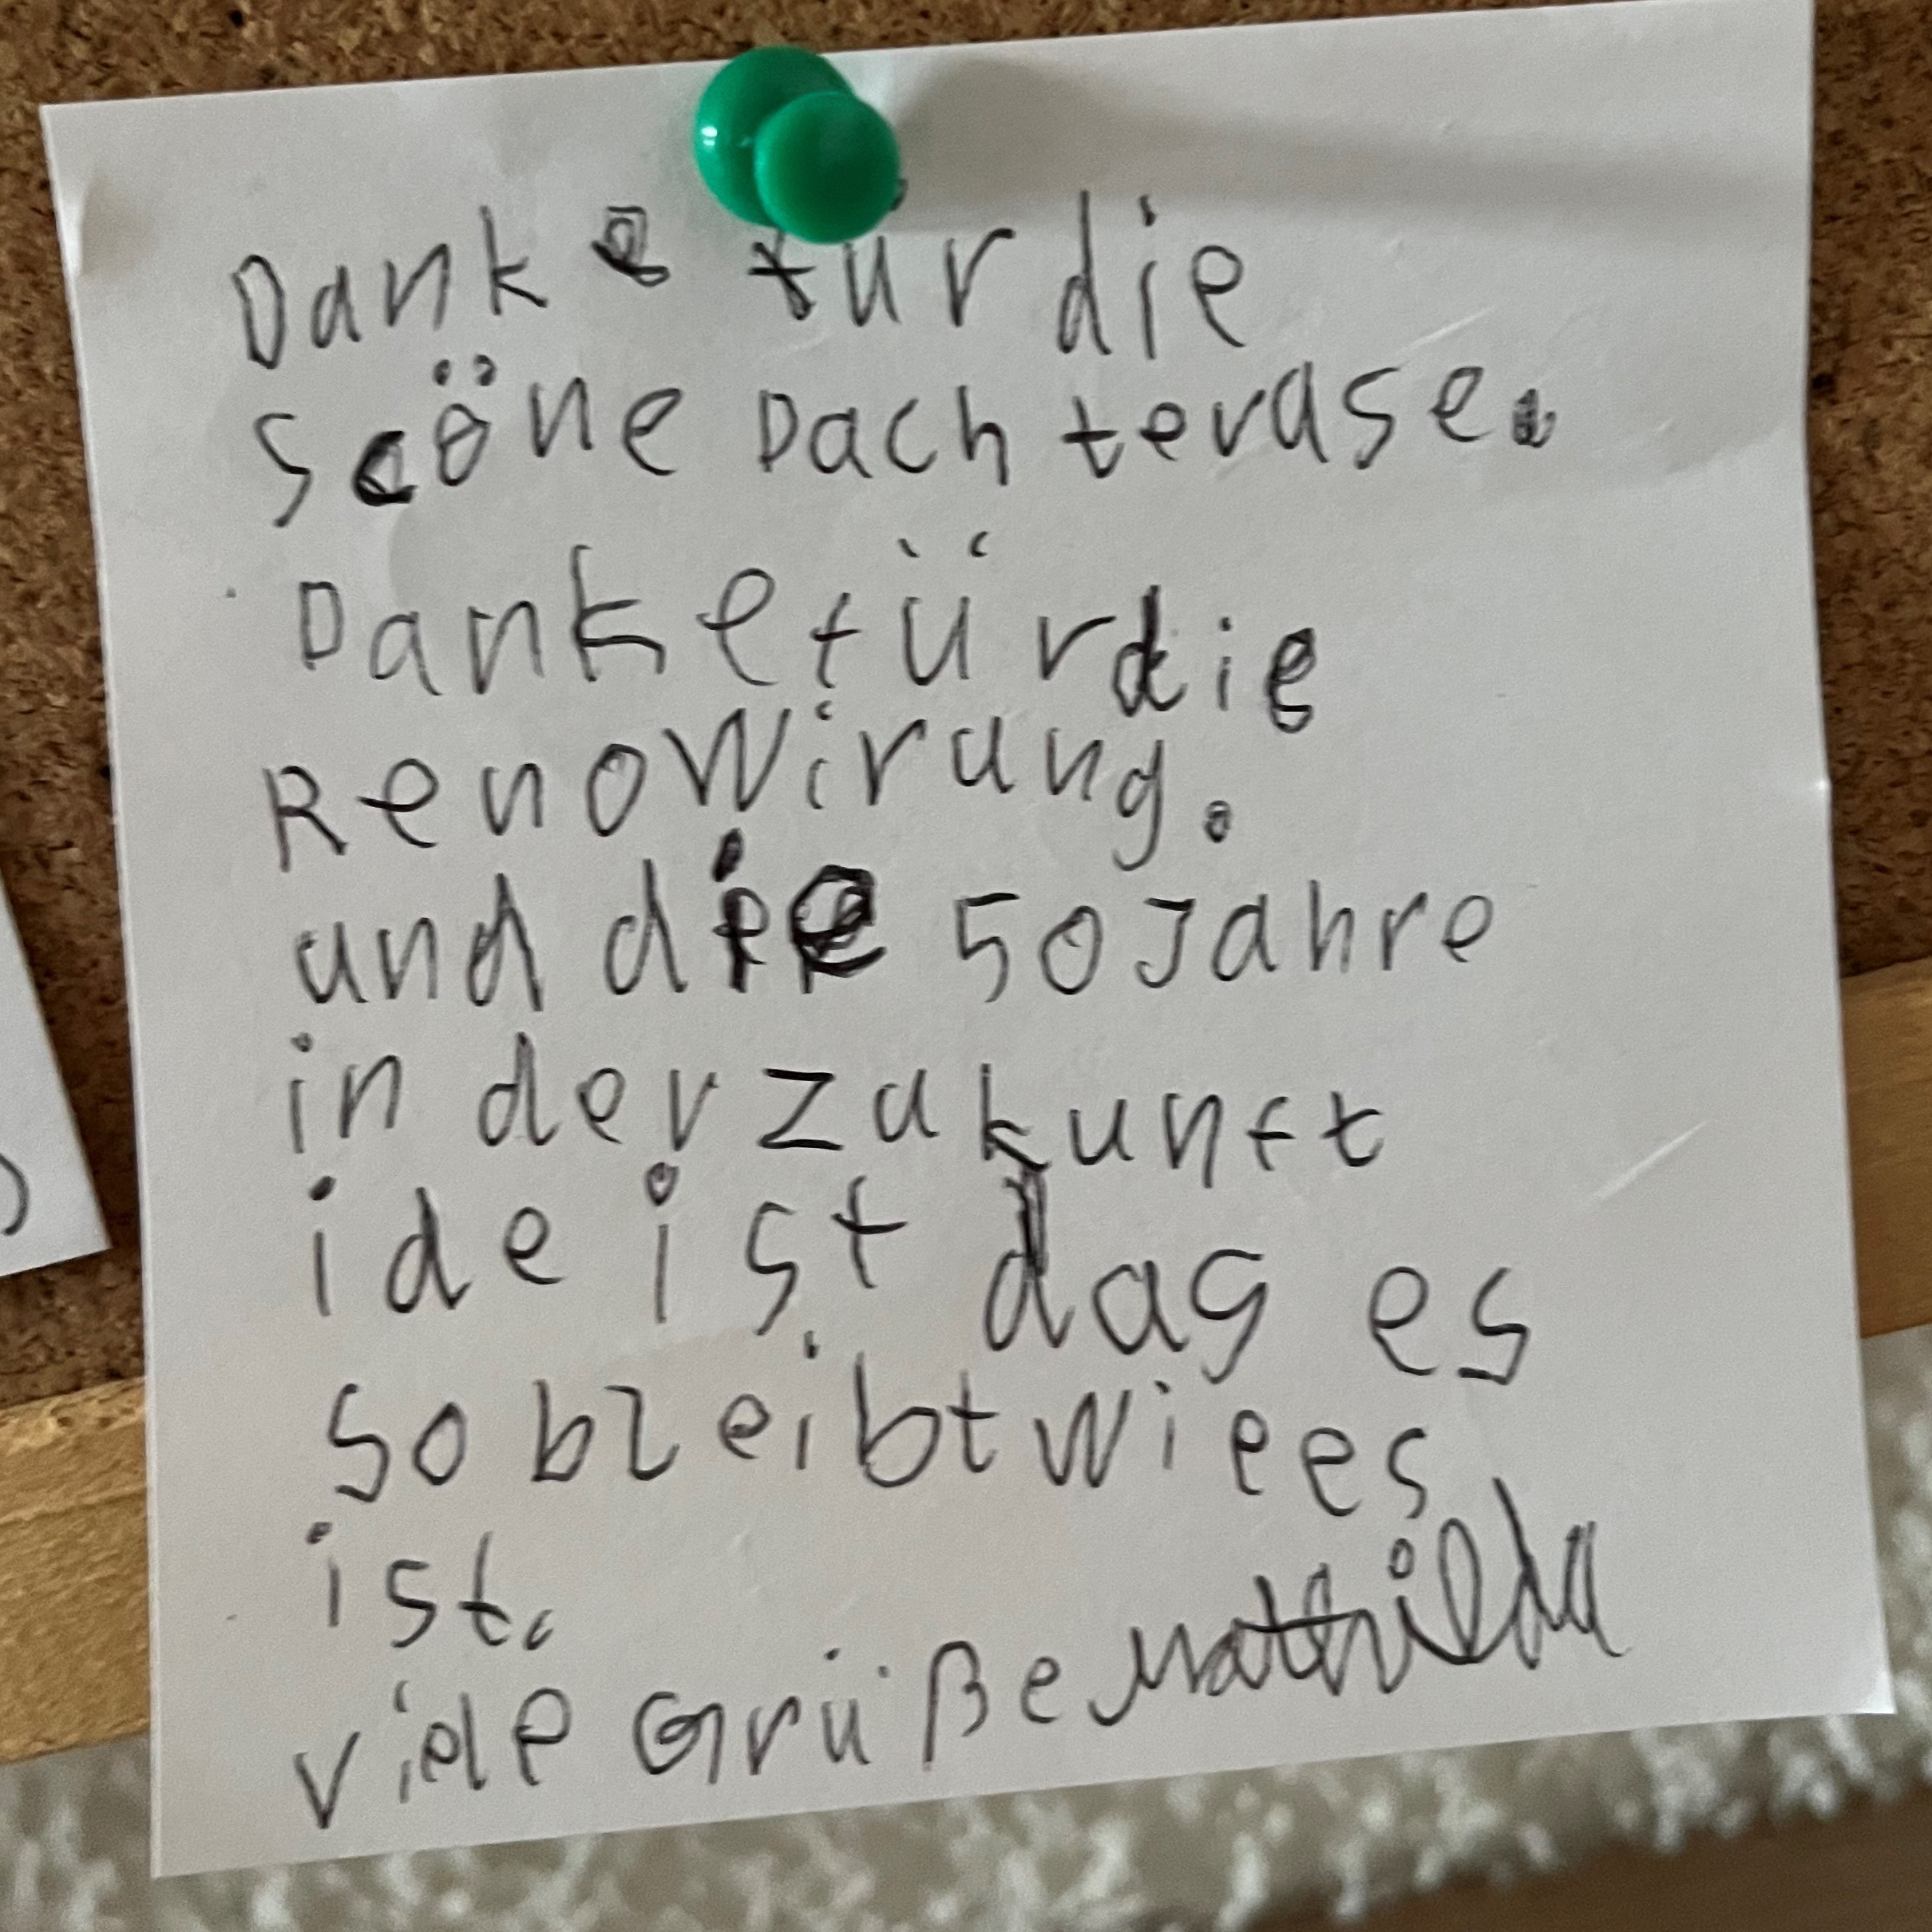 Danke für die
scöne Dachterase.
Danke für die
Renowirung.
und die 50 Jahre
in der zukunft
ide ist das es
so bleibt wie es
ist.
viele Grüße Mathilda